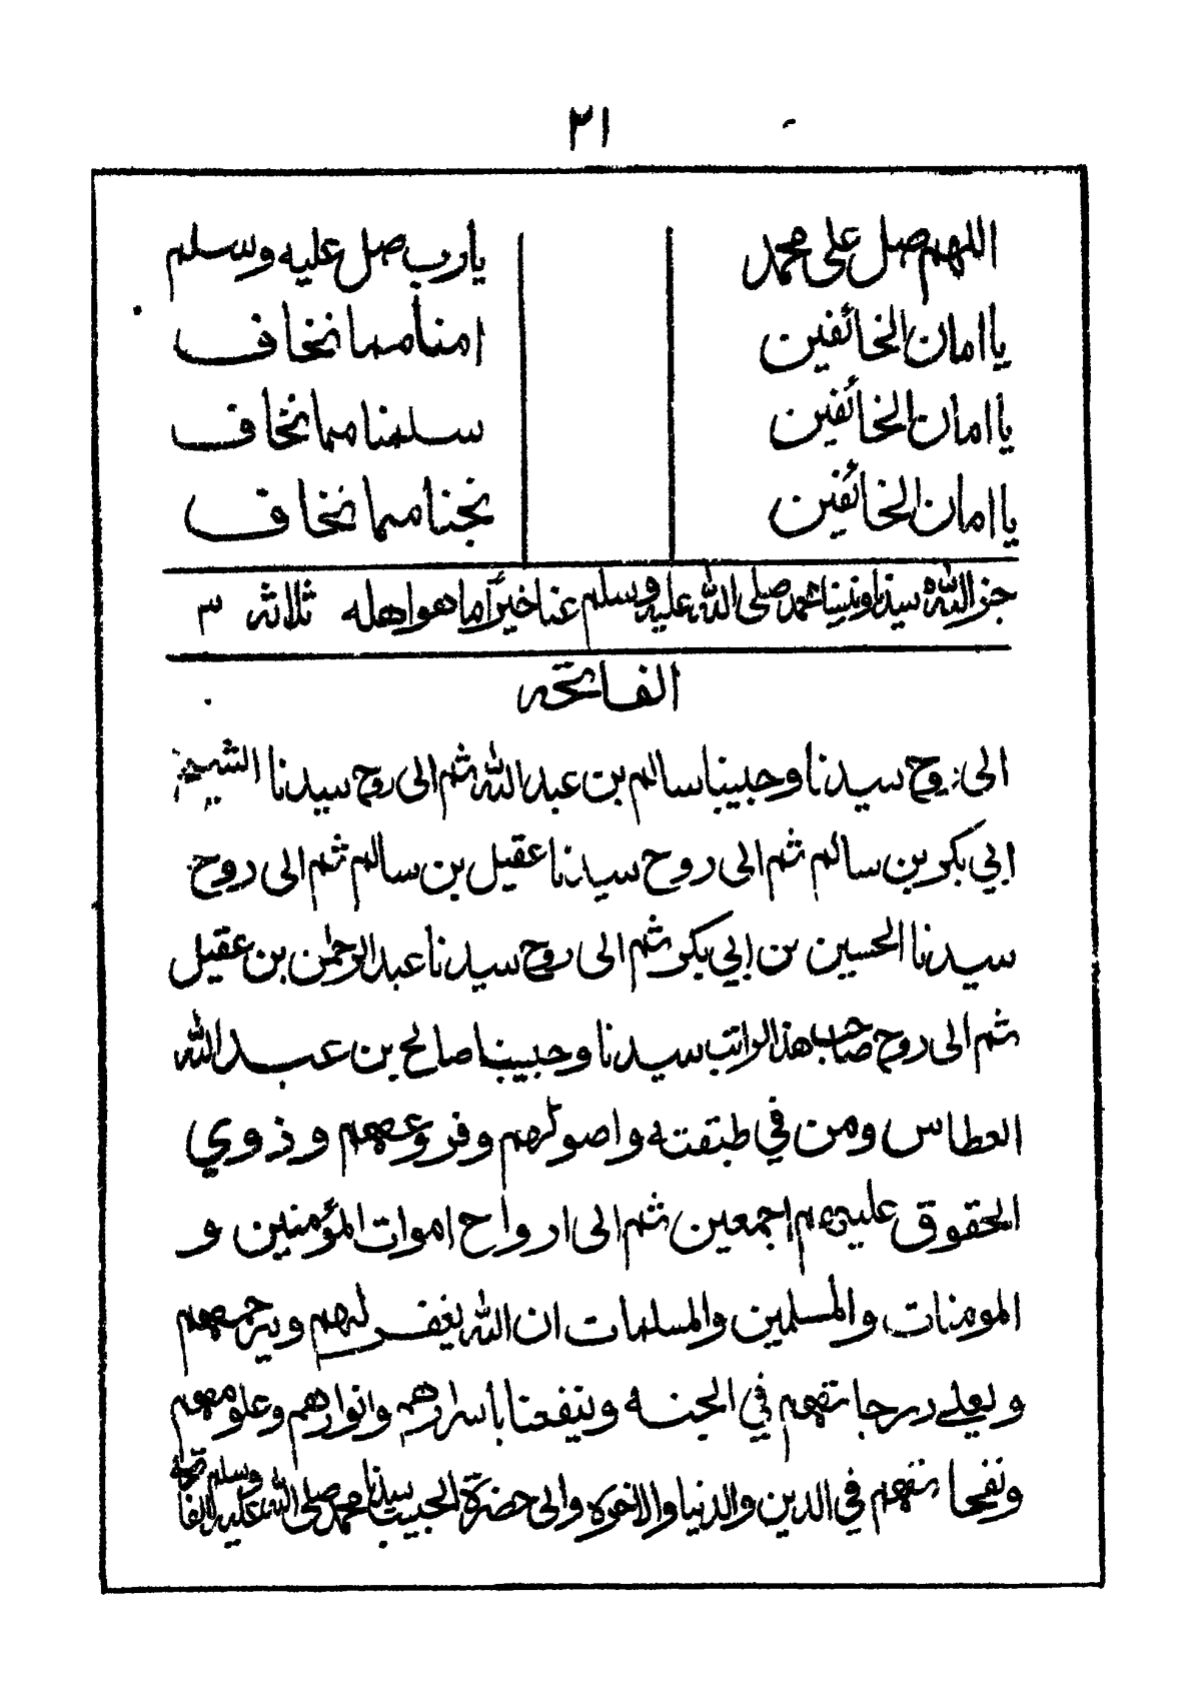 ٢١
اللهم صل على محمد يارب صل عليه وسلم
يا امان الخائفين امنا مما نخاف
يا امان الخائفين سلمنا مما نخاف
يا امان الخائفين نجنا مما نخاف
جز الله سيدنا ونبينا محمد صلى الله عليه وسلم عنا خيرا ما هو اهله ثلاثه ٣
الفاتحه
الى روح سيدنا وحبيبنا سالم بن عبد الله ثم الى روح سيدنا الشيخ
ابي بكر بن سالم ثم الى روح سيدنا عقيل بن سالم ثم الى روح
سيدنا الحسين بن ابي بكر ثم الى روح سيدنا عبد الرحمٰن بن عقيل
ثم الى روح صاحب هذا الراتب سيدنا وحبيبنا صالح بن عبد الله
العطاس ومن في طبقته واصولهم وفروعهم وذوي
الحقوق عليهم اجمعين ثم الى ارواح اموات المؤمنين و
المومنات والمسلمين والمسلمات ان الله يغفر لهم ويرحمهم
ويعلي درجاتهم في الجنه وينفعنا باسرارهم وانوارهم وعلومهم
ونفحاتهم في الدين والدنيا والاخره والى حضرة الحبيب سيدنا محمد صلى الله عليه وسلم الفاتحة